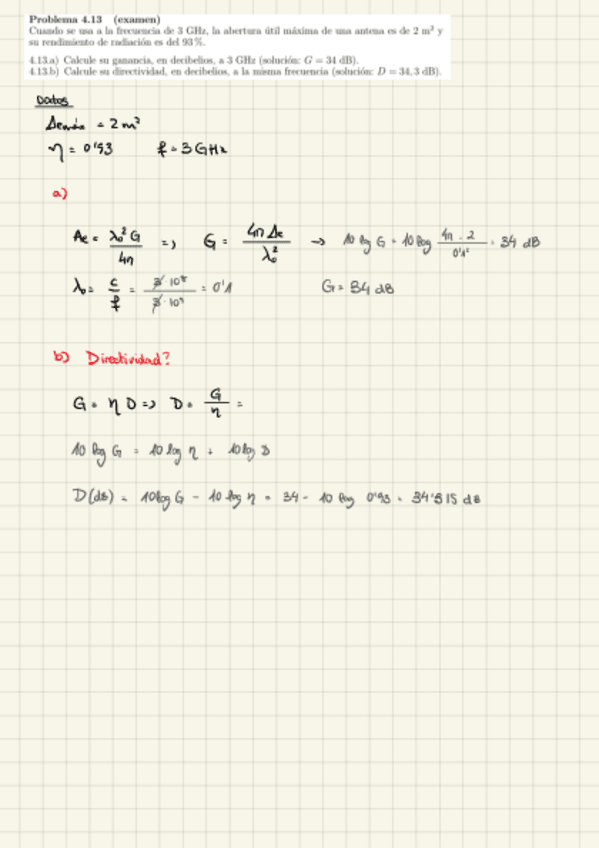 Problema 4.13 (examen)
Cuando se usa a la frecuencia de 3 GHz, la abertura útil máxima de una antena es de 2 m² y
su rendimiento de radiación es del 93 %.
4.13.a) Calcule su ganancia, en decibelios, a 3 GHz (solución: G = 34 dB).
4.13.b) Calcule su directividad, en decibelios, a la misma frecuencia (solución: D = 34,3 dB).
Datos
Aemáx = 2 m²
η = 0'93 f = 3 GHz
a)
Ae = λ₀² G / 4π => G = 4π Ae / λ₀² → 10 log G = 10 log 4π · 2 / 0'1² = 34 dB
λ₀ = c / f = 3·10⁸ / 3·10⁹ = 0'1 G = 34 dB
b) Directividad?
G = η D => D = G / η =
10 log G = 10 log η + 10 log D
D(dB) = 10 log G - 10 log η = 34 - 10 log 0'93 = 34'315 dB